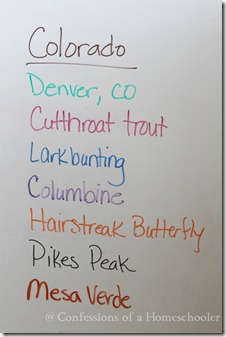 Colorado
Denver, CO
Cutthroat trout
Larkbunting
Columbine
Hairstreak Butterfly
Pikes Peak
Mesa Verde
@ Confessions of a Homeschooler